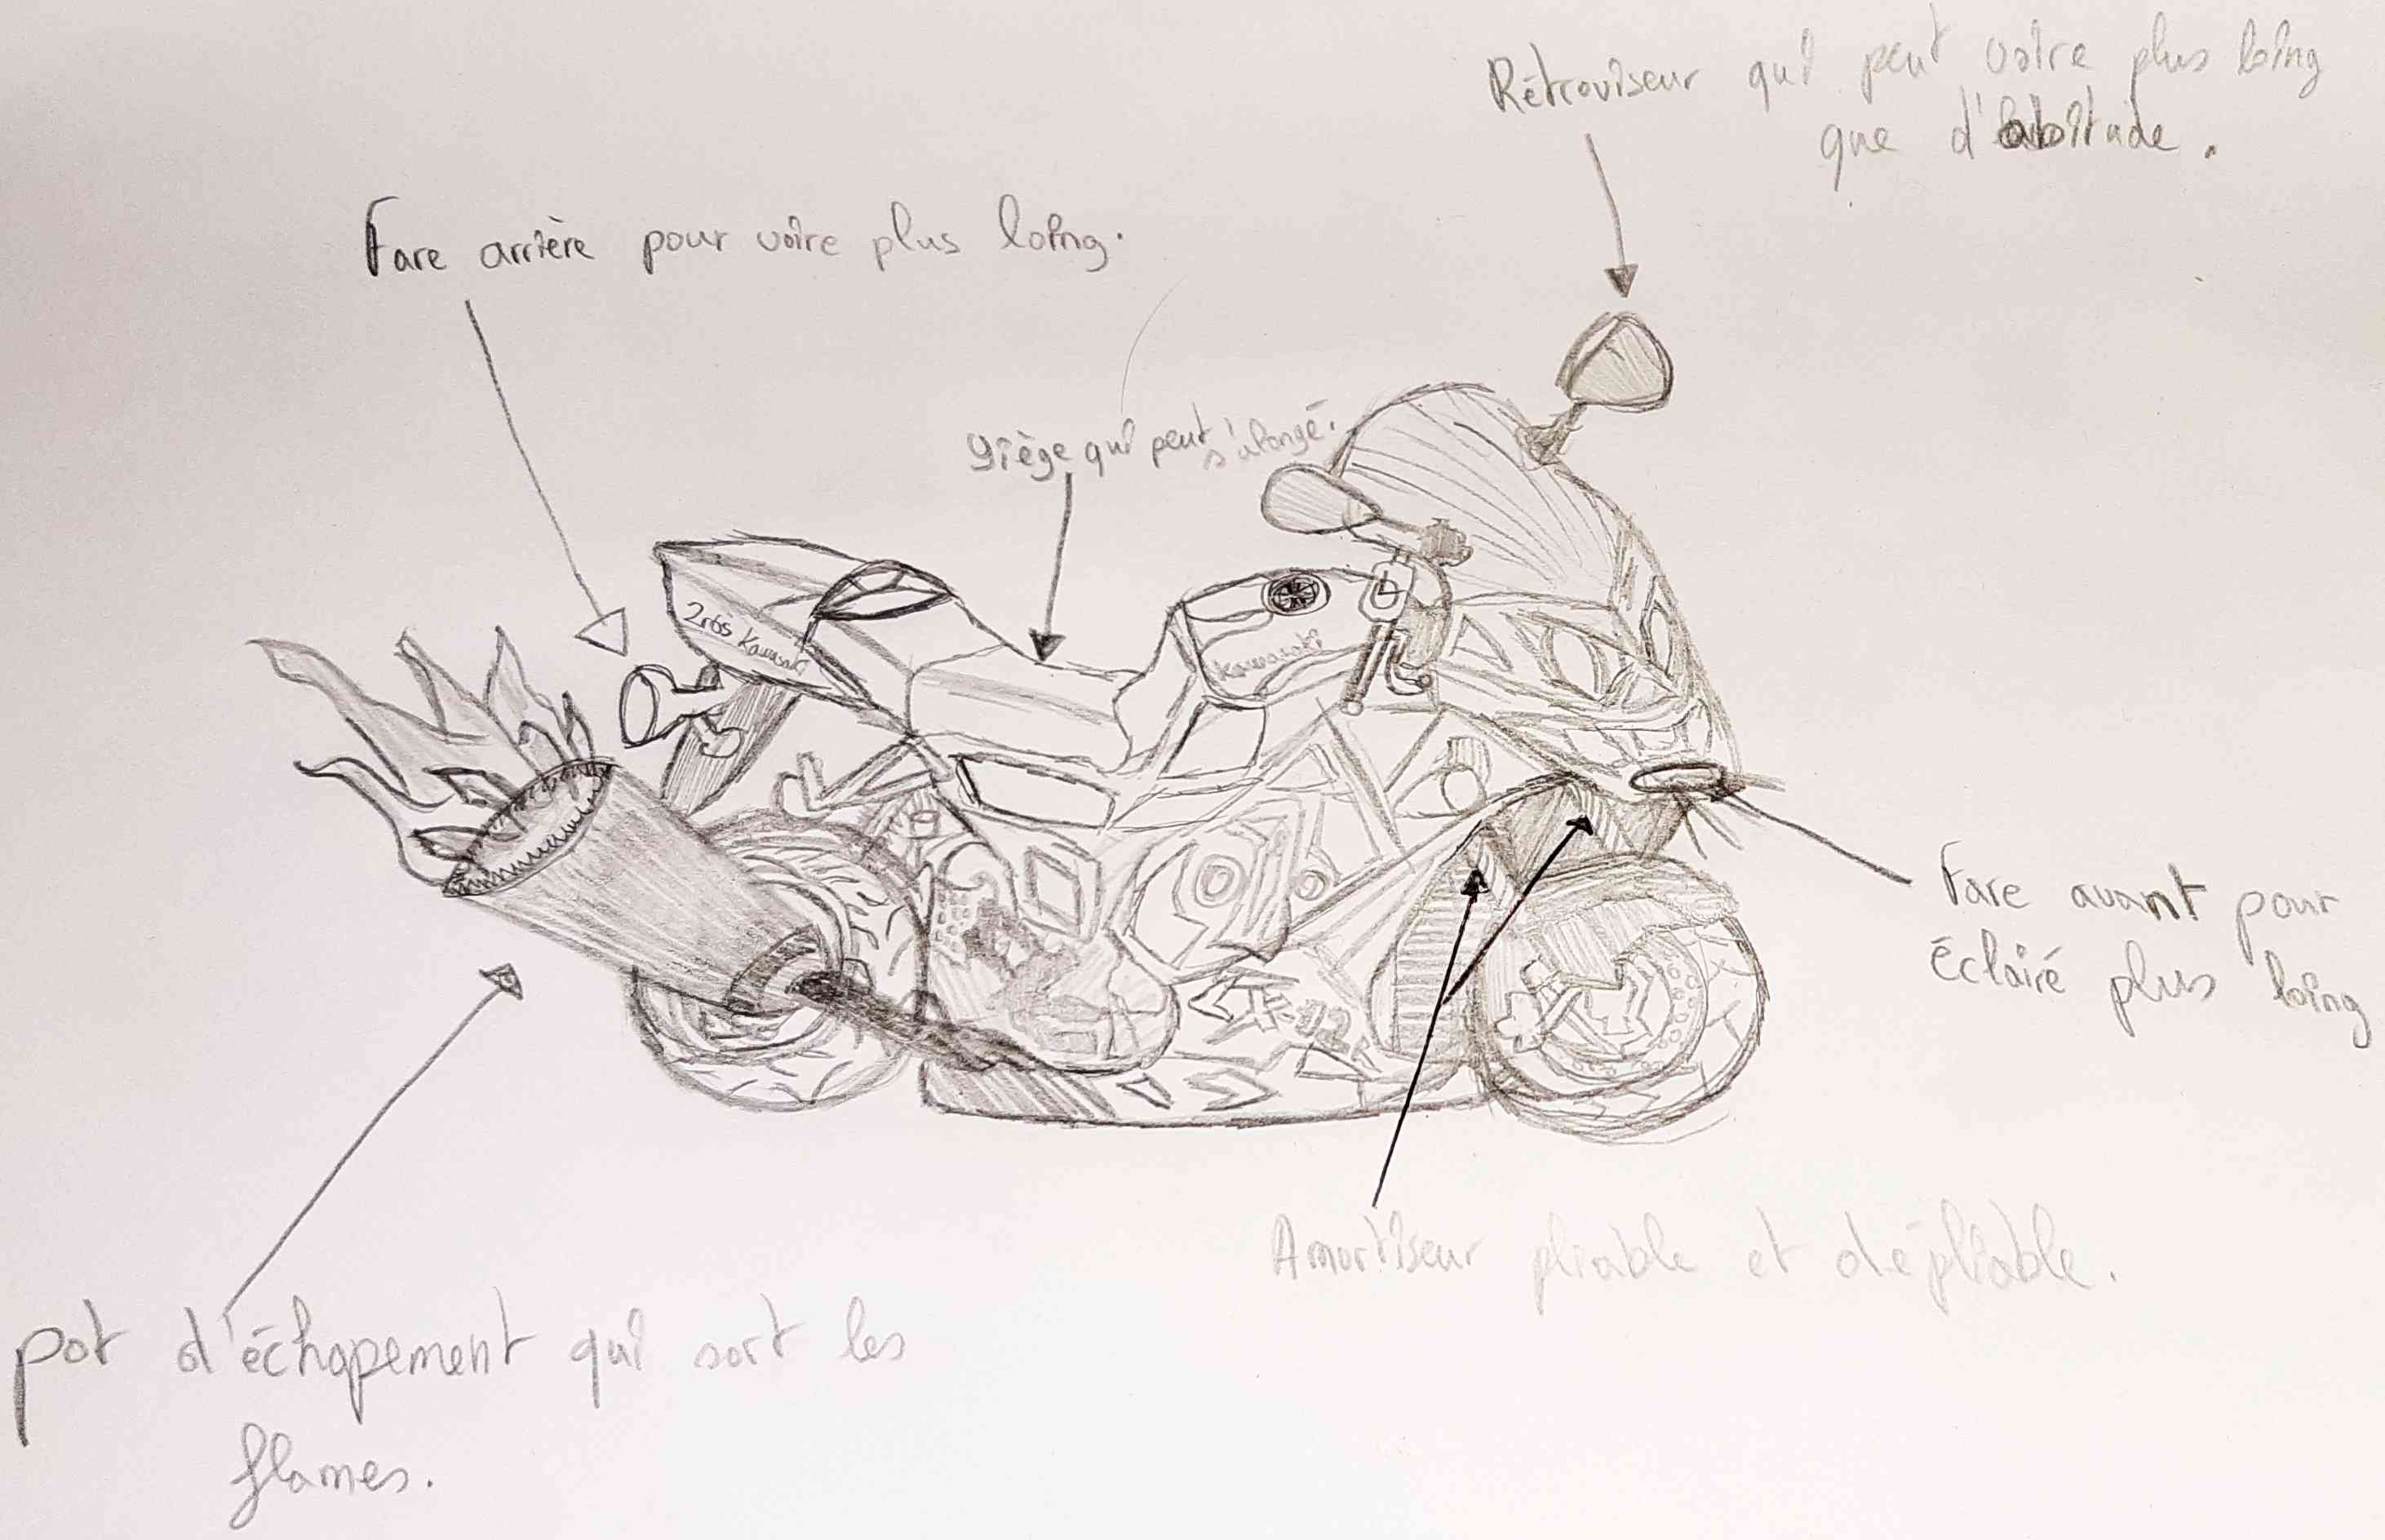 Rétroviseur qui peut voire plus loing
que d'abitude.
Fare arrière pour voire plus loing.
Siège qui peut s'alongé.
Kawasaki
Kawasaki
Fare avant pour
éclairé plus loing
Amortiseur pliable et dépliable.
pot d'échapement qui sort les
flames.